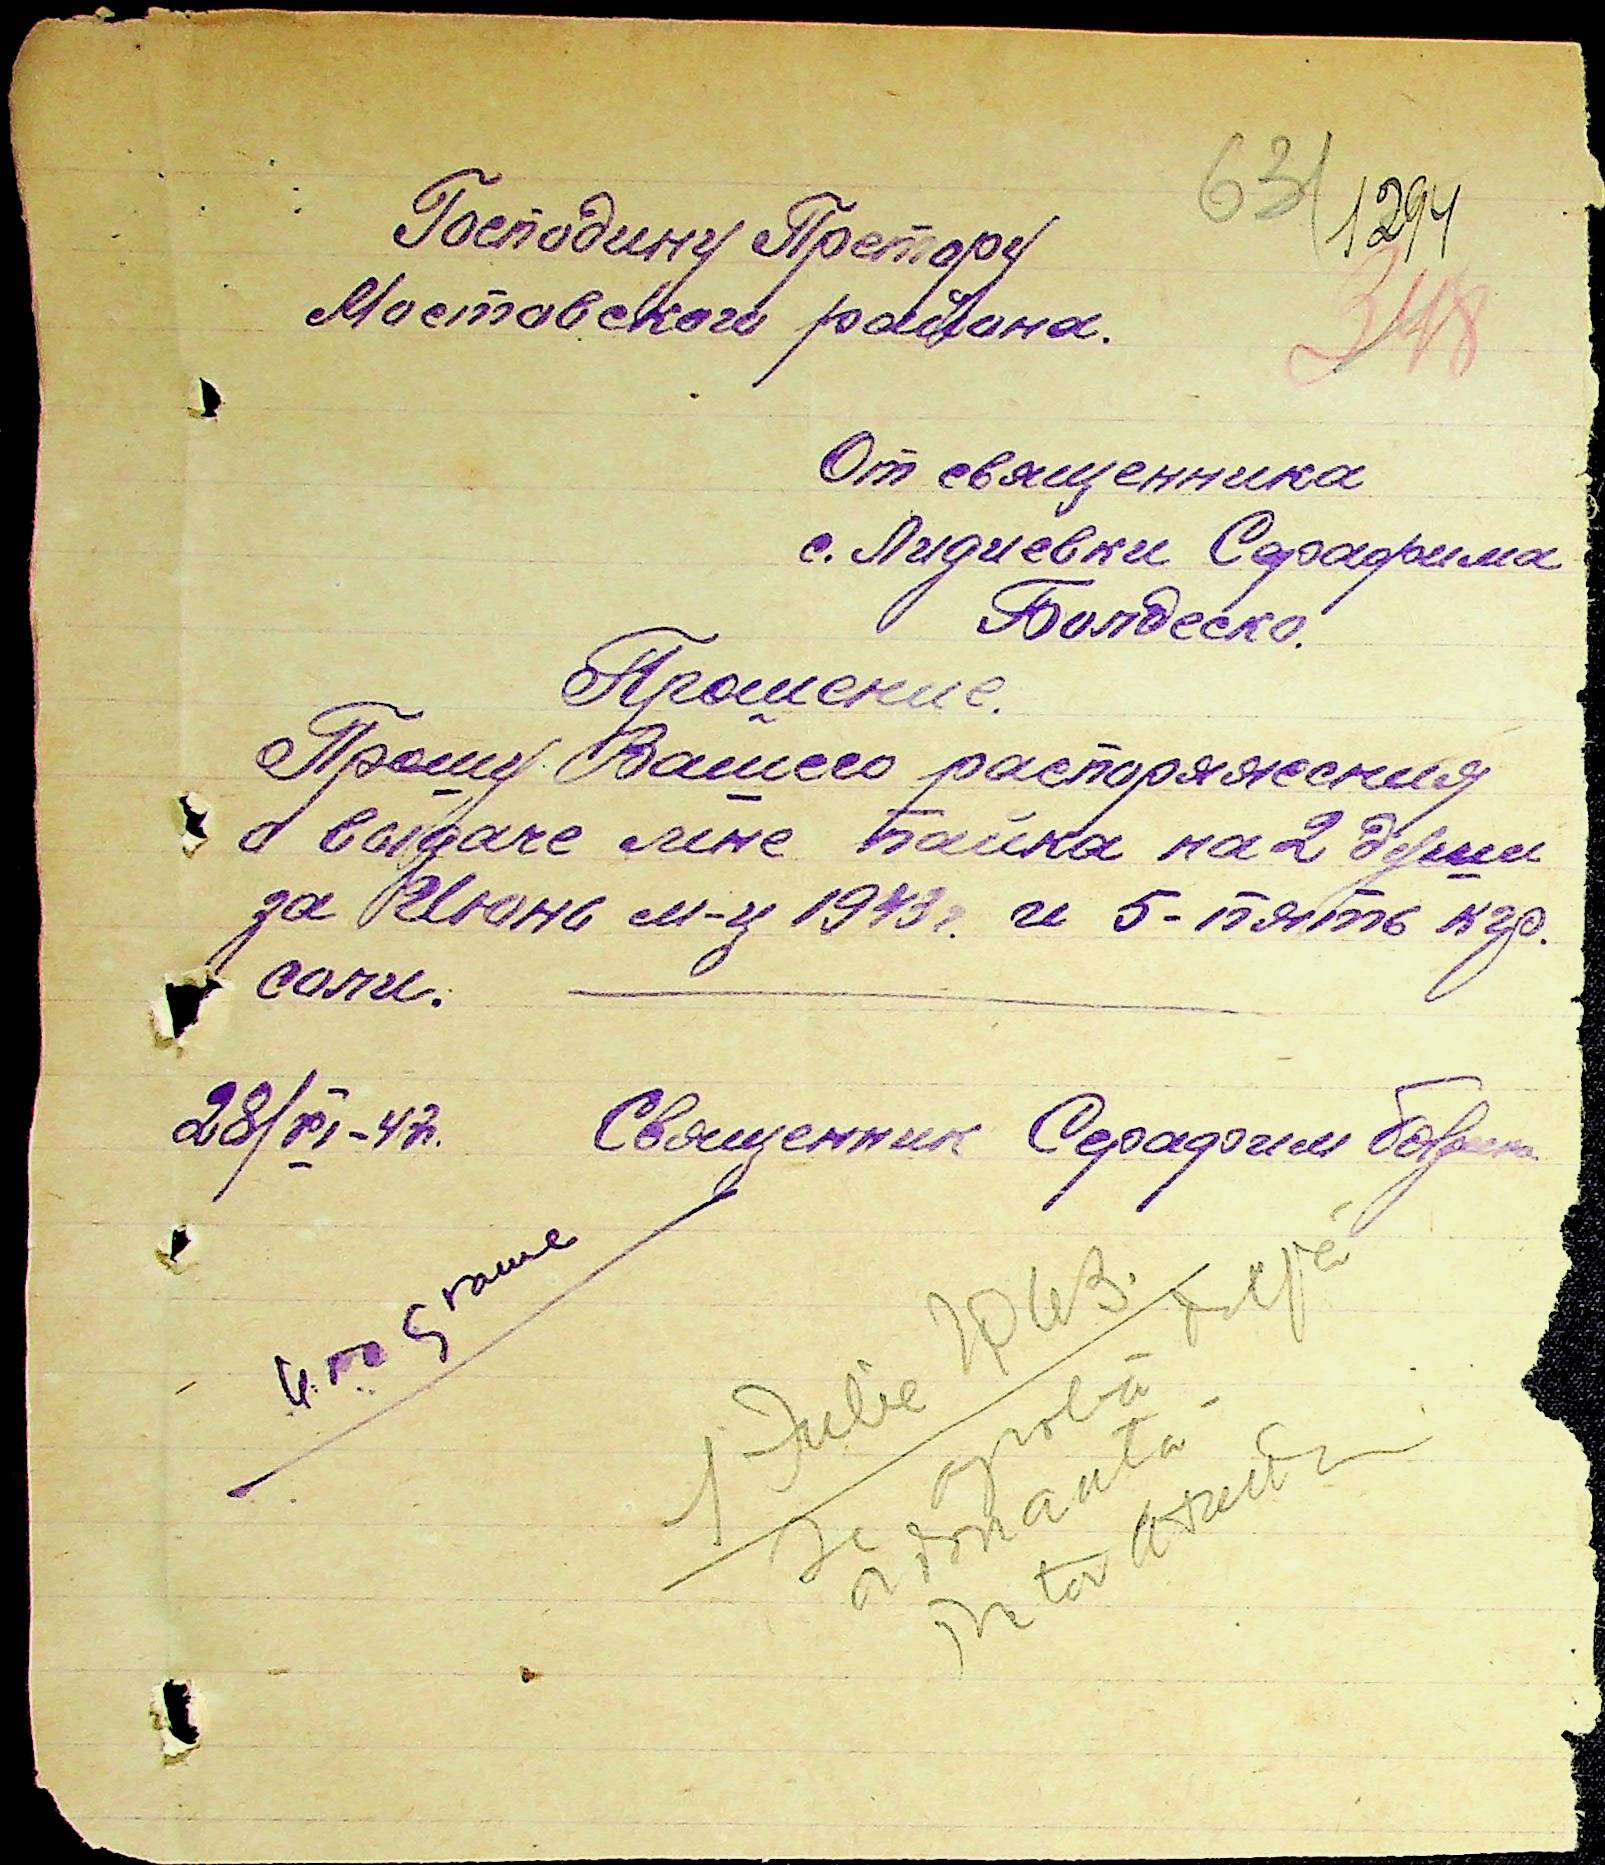 63/
1294
348
Господину Претору
Мостовского района.
От священника
с. Лидиевки Серафима
Болдеско.
Прошение.
Прошу Вашего распоряжения
о выдаче мне пайка на 2 души
за Июнь м-ц 1943 г. и 5-пять кгр.
соли.
28/VI-43. Священник Серафим
1 Iulie 1943.
se aprobă după
ordonanță